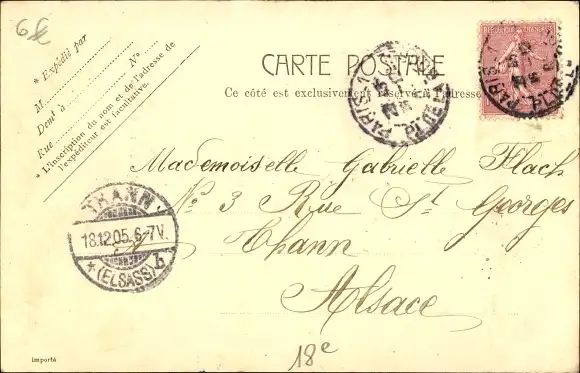 6€
* Expédié par
M
Demt à N°
Rue
* L'inscription du nom et de l'adresse de
l'expéditeur est facultative.
CARTE POSTALE
Ce côté est exclusivement réservé à l'adresse
RÉPUBLIQUE FRANÇAISE
PARIS
PARIS
Mademoiselle Gabrielle Flach
N° 3 Rue St Georges
Thann
Alsace
THANN
18.12.05.6-7V.
* (ELSASS) b
18e
Importé